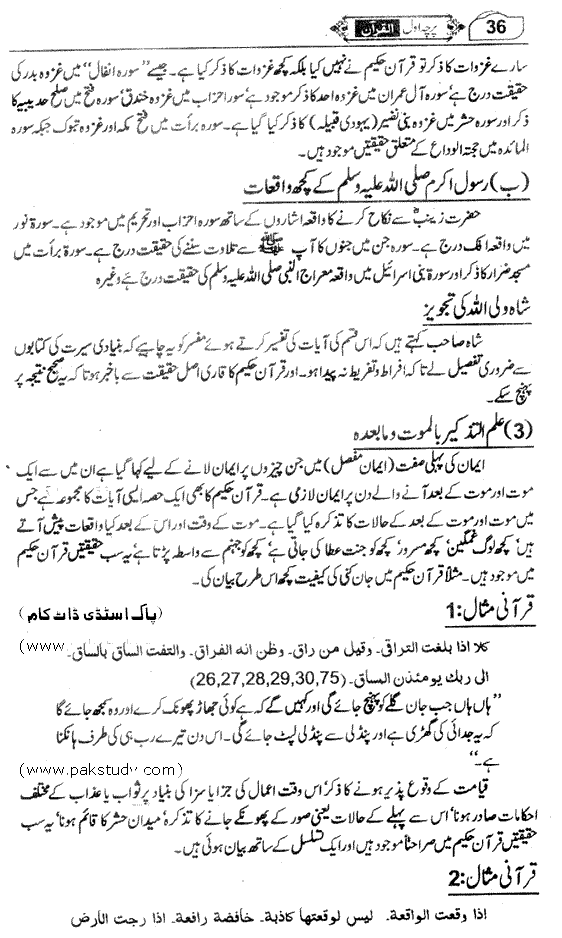 36 القرآن پرچہ اول
سارے غزوات کا ذکر تو قرآن حکیم نے نہیں کیا بلکہ کچھ غزوات کا ذکر کیا ہے۔ جیسے ’’سورہ انفال‘‘ میں غزوہ بدر کی
حقیقت درج ہے‘ سورہ آل عمران میں غزوہ احد کا ذکر موجود ہے‘ سور احزاب میں غزوہ خندق‘ سورہ فتح میں صلح حدیبیہ کا
ذکر اور سورہ حشر میں غزوہ بنی نضیر (یہودی قبیلہ) کا ذکر کیا گیا ہے۔ سورہ برأت میں فتح مکہ اور غزوہ تبوک جبکہ سورہ
المائدہ میں حجتہ الوداع کے متعلق حقیقتیں موجود ہیں۔
(ب) رسول اکرم صلی اللہ علیہ وسلم کے کچھ واقعات
حضرت زینبؓ سے نکاح کرنے کا واقعہ اشاروں کے ساتھ سورہ احزاب اور تحریم میں موجود ہے۔ سورۃ نور
میں واقعہ افک درج ہے۔ سورہ جن میں جنوں کا آپ ﷺ سے تلاوت سننے کی حقیقت درج ہے۔ سورۃ برأت میں
مسجد ضرار کا ذکر اور سورۃ بنی اسرائیل میں واقعہ معراج النبی صلی اللہ علیہ وسلم کی حقیقت درج ہے وغیرہ
شاہ ولی اللہ کی تجویز
شاہ صاحب کہتے ہیں کہ اس قسم کی آیات کی تفسیر کرتے ہوئے مفسر کو یہ چاہیے کہ بنیادی سیرت کی کتابوں
سے ضروری تفصیل لے تاکہ افراط و تفریط نہ پیدا ہو۔ اور قرآن حکیم کا قاری اصل حقیقت سے باخبر ہوتا کہ یہ صحیح نتیجہ پر
پہنچ سکے۔
(3) علم التذکیر بالموت وما بعدہ
ایمان کی پہلی صفت (ایمان مفصل) میں جن چیزوں پر ایمان لانے کے لیے کہا گیا ہے ان میں سے ایک
موت اور موت کے بعد آنے والے دن پر ایمان لازمی ہے۔ قرآن حکیم کا بھی ایک حصہ ایسی آیات کا مجموعہ ہے جس
میں موت اور موت کے بعد کے حالات کا تذکرہ کیا گیا ہے۔ موت کے وقت اور اس کے بعد کیا واقعات پیش آتے
ہیں‘ کچھ لوگ غمگین‘ کچھ مسرور‘ کچھ کو جنت عطا کی جاتی ہے‘ کچھ کو جہنم سے واسطہ پڑتا ہے‘ یہ سب حقیقتیں قرآن حکیم
میں موجود ہیں۔ مثلاً قرآن حکیم میں جان کنی کی کیفیت کچھ اس طرح بیان کی۔
قرآنی مثال: 1 (پاک اسٹڈی ڈاٹ کام)
کلا اذا بلغت التراقی۔ وقیل من راق۔ وظن انه الفراق۔ والتفت الساق بالساق۔ (www.
الی ربك یومئذن المساق۔ (26,27,28,29,30,75)
’’ہاں ہاں جب جان گلے کو پہنچ جائے گی اور کہیں گے کہ ہے کوئی جھاڑ پھونک کرے اور وہ سمجھ جائے گا
کہ یہ جدائی کی گھڑی ہے اور پنڈلی سے پنڈلی لپٹ جائے گی۔ اس دن تیرے رب ہی کی طرف ہانکنا
ہے۔‘‘ (www.pakstudy.com)
قیامت کے وقوع پذیر ہونے کا ذکر‘ اس وقت اعمال کی جزا یا سزا کی بنیاد پر ثواب یا عذاب کے مختلف
احکامات صادر ہونا‘ اس سے پہلے کے حالات یعنی صور کے پھونکے جانے کا تذکرہ‘ میدان حشر کا قائم ہونا‘ یہ سب
حقیقتیں قرآن حکیم میں صراحتاً موجود ہیں اور ایک تسلسل کے ساتھ بیان ہوئی ہیں۔
قرآنی مثال: 2
اذا وقعت الواقعة۔ لیس لوقعتها کاذبة۔ خافضة رافعة۔ اذا رجت الارض